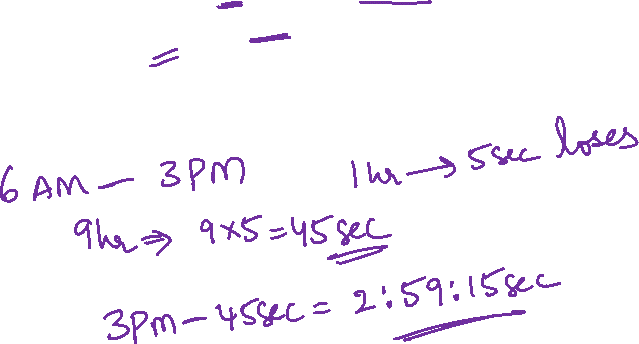 6 AM - 3 PM 1 hr → 5 sec loses
9 hr ⇒ 9×5=45 sec
3PM - 45sec = 2:59:15sec